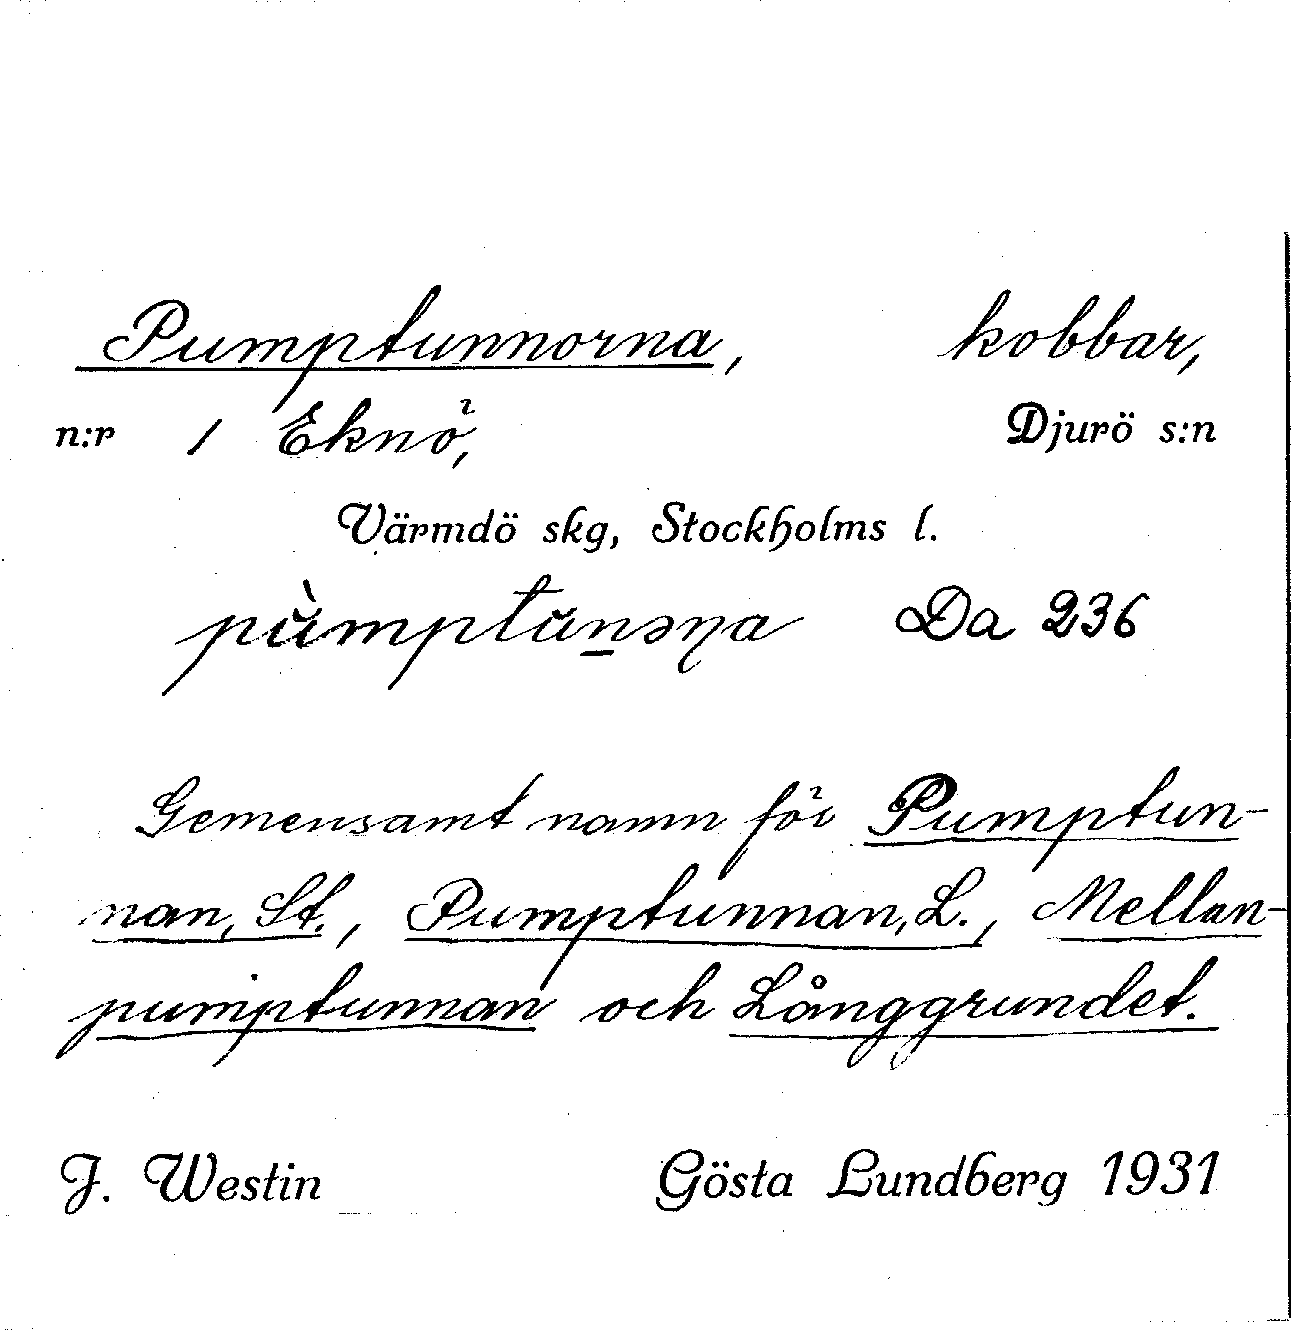 Pumptunnorna, kobbar,
n:r 1 Eknö, Djurö s:n
Värmdö skg, Stockholms l.
pùmptŭn̲əɳa Da 236
Gemensamt namn för Pumptun-
nan, St., Pumptunnan, L., Mellan-
pumptunnan och Långgrundet.
J. Westin Gösta Lundberg 1931